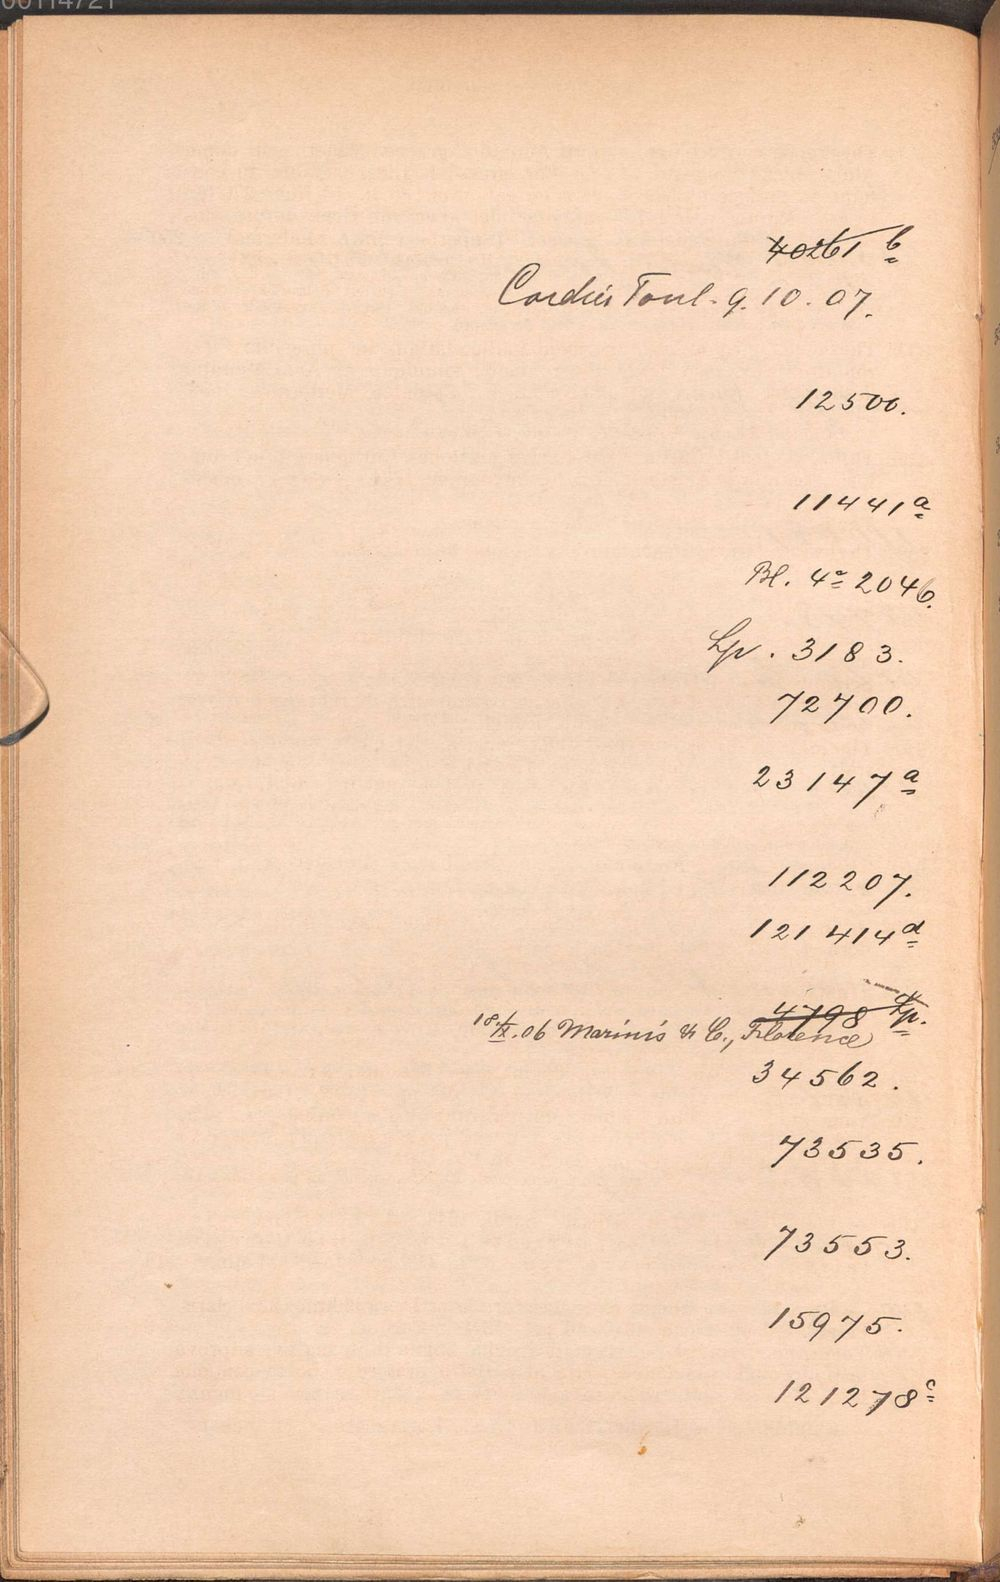 00114721
40261 b
Cordier Toul. 9. 10. 07.
12500.
11441 a
Bl. 4° 2046.
Lp. 3183.
72700.
23147 a
112207.
121414 d
4798 Lp.
18/IX.06 Marinis & C., Florence
34562.
73535.
73553.
15975.
121278 c